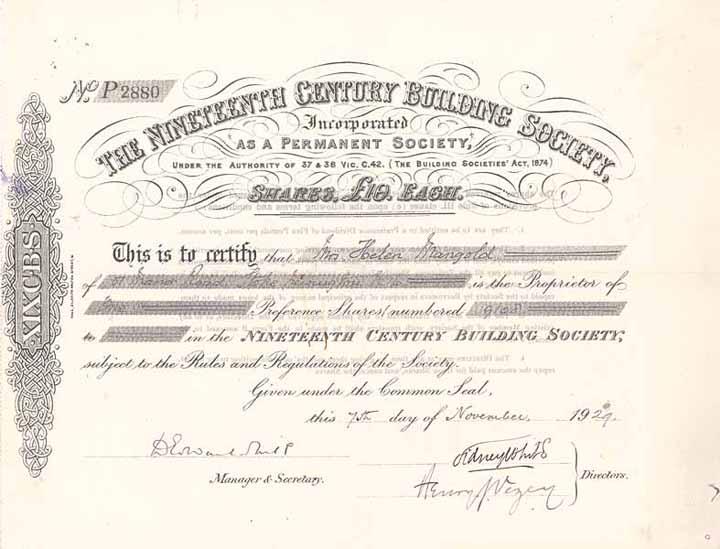 No P 2880
THE NINETEENTH CENTURY BUILDING SOCIETY,
Incorporated
AS A PERMANENT SOCIETY,
UNDER THE AUTHORITY OF 37 & 38 VIC. C.42. (THE BUILDING SOCIETIES' ACT, 1874)
SHARES, £10. EACH.
XIXCBS
This is to certify that Mrs Helen Mangold
of Manor Road Stoke Newington is the Proprietor of
Preference Shares, numbered
to in the NINETEENTH CENTURY BUILDING SOCIETY,
subject to the Rules and Regulations of the Society.
Given under the Common Seal,
this 7th day of November 1929.
Manager & Secretary.
Sidney White
Henry Vezey
Directors.